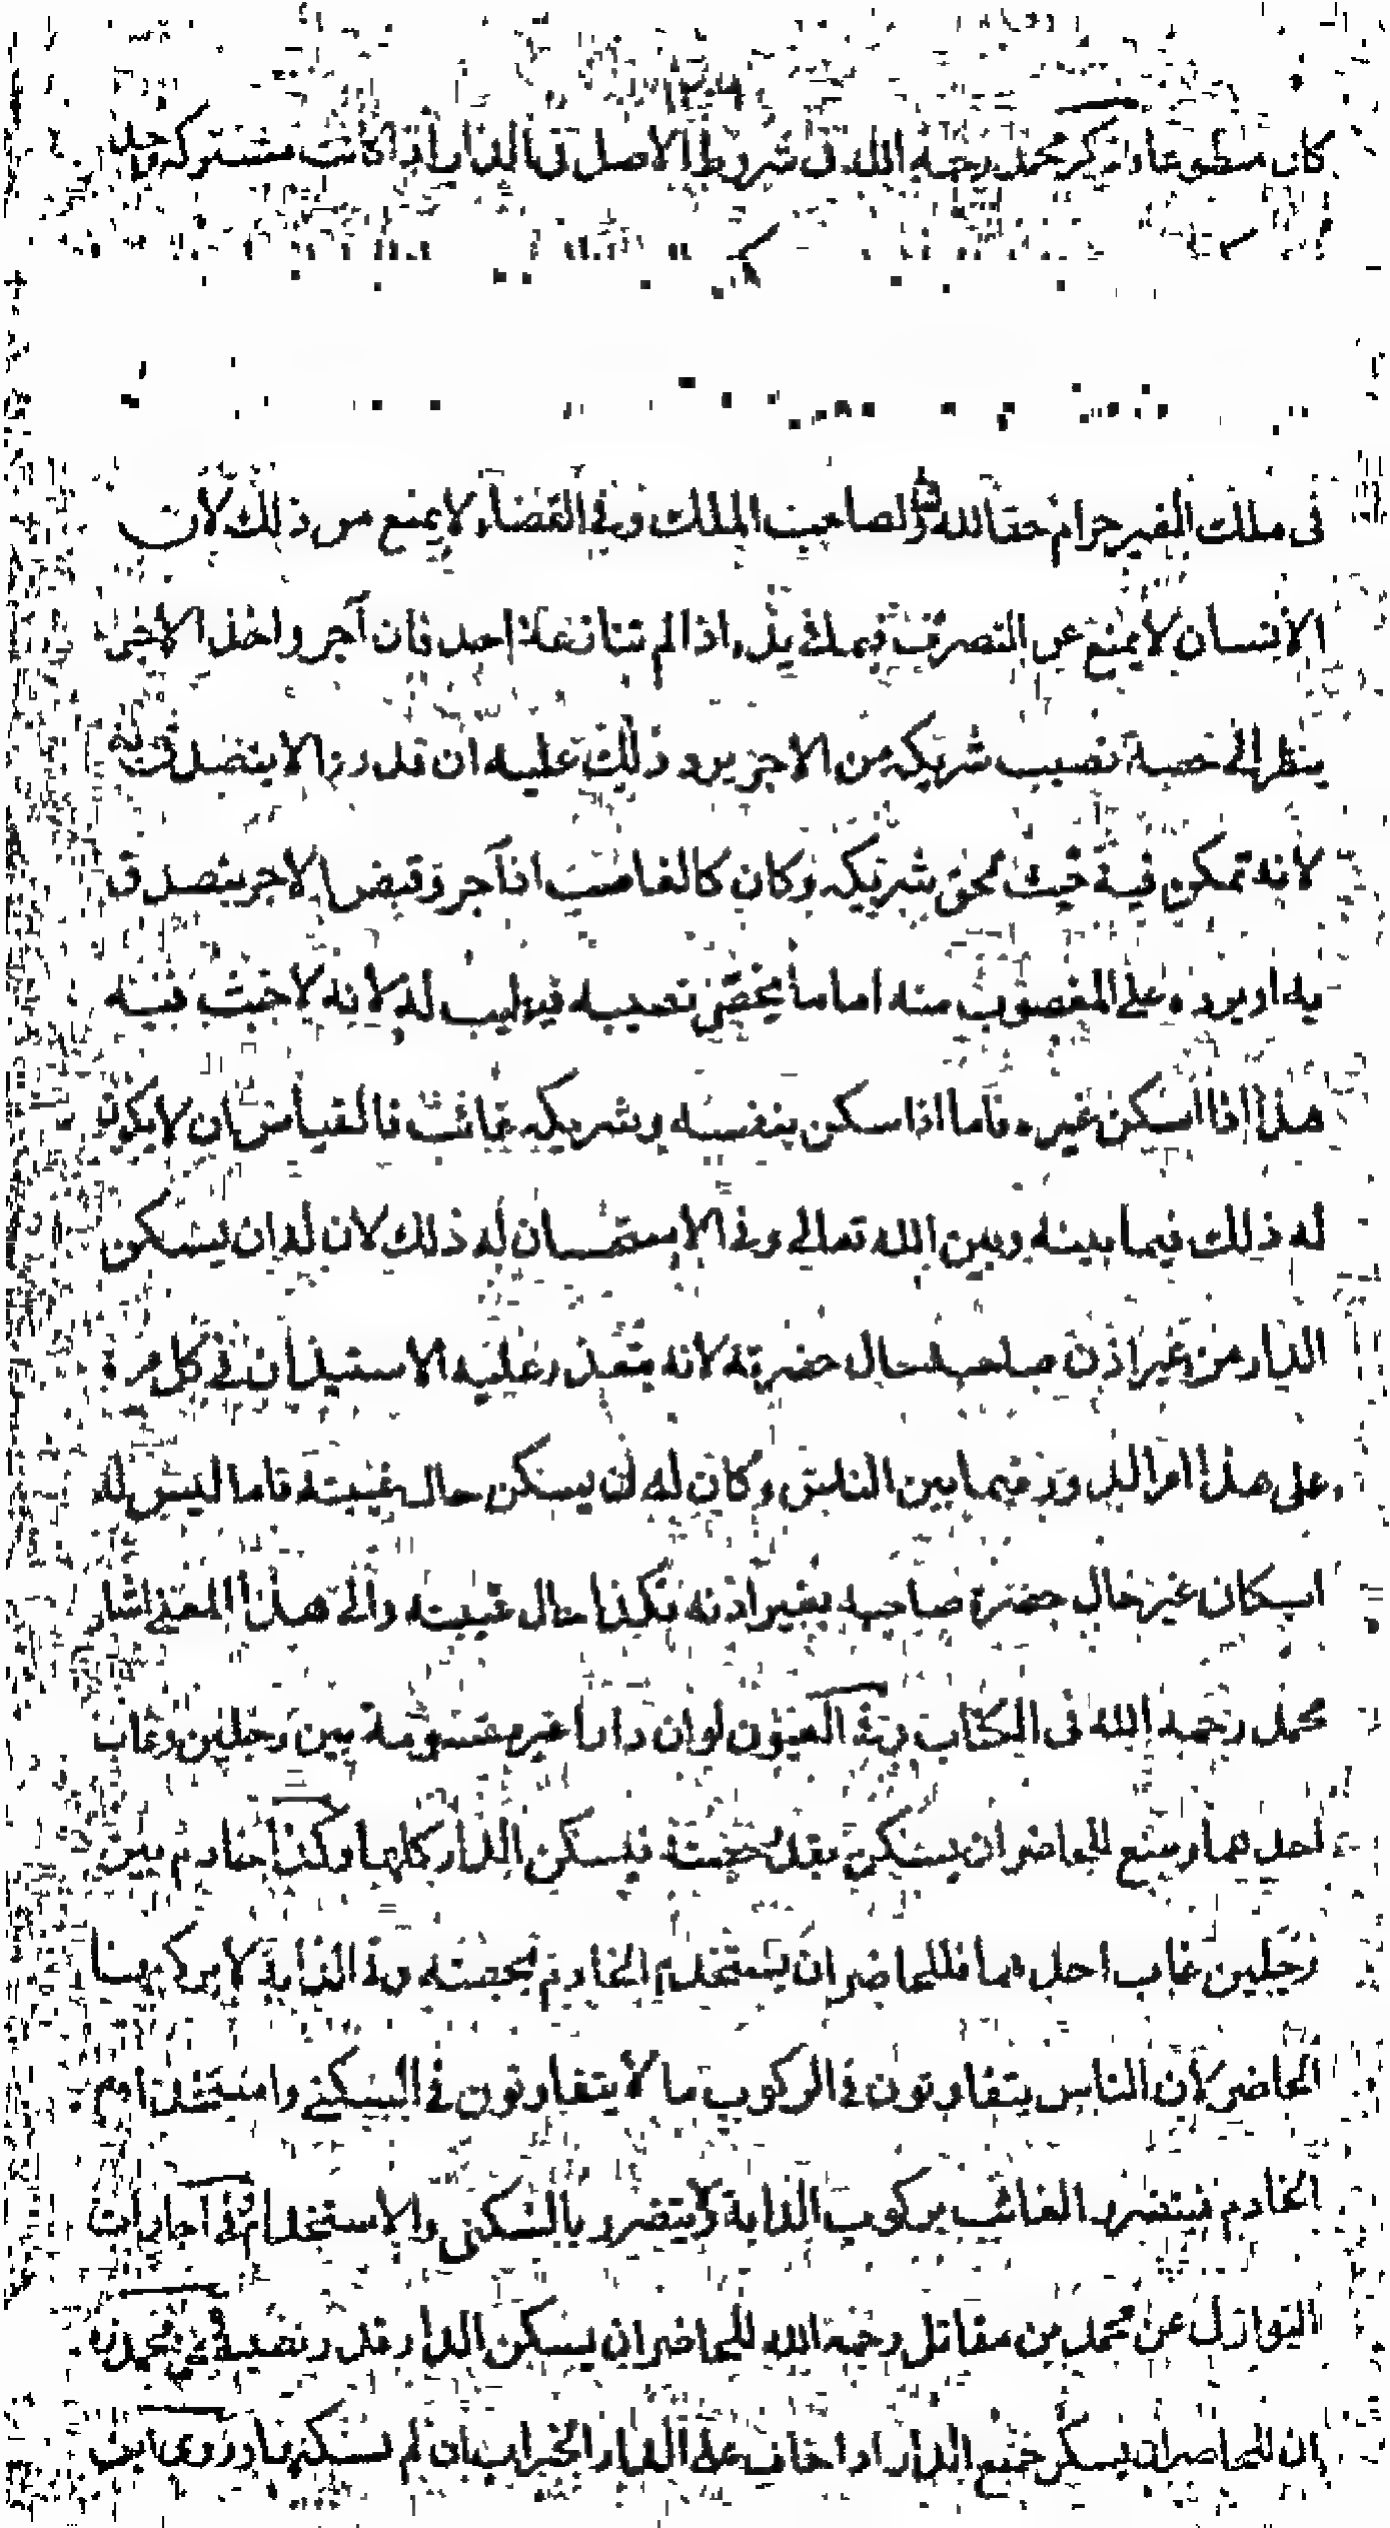 كان متطوعا وذكر محمد رحمه الله في شروط الاصل في الدار اذا كانت مشتركة
في ملك الغير حرام حقا لله ولصاحب الملك وفي القضاء لا يمنع من ذلك لأن
الانسان لا يمنع عن التصرف فيما في يده اذا لم ينازعه احد فان آجر واخذ الاجر
ينظر الى حصة نصيب شريكه من الاجر يرد ذلك عليه ان قدر والا يتصدق
لانه تمكن فيه خبث لحق شريكه وكان كالغاصب اذا آجر وقبض الاجر يتصدق
به او يرده على المغصوب منه اما ما يخص نصيبه فيطيب له لانه لا خبث فيه
هذا اذا اسكن غيره فاما اذا سكن بنفسه وشريكه غائب فالقياس ان لا يكون
له ذلك فيما بينه وبين الله تعالى وفي الاستحسان له ذلك لان له ان يسكن
الدار من غير اذن صاحبه حال حضرته لانه يتعذر عليه الاستيذان في كل مرة
على هذا امر الدور فيما بين الناس وكان له ان يسكن حال غيبته فاما ليس له
اسكان غيره حال حضرة صاحبه بغير اذنه فكذا حال غيبته والى هذا المعنى اشار
محمد رحمه الله في الكتاب وفي العيون لو ان دارا غير مقسومة بين رجلين وغاب
احدهما وسع للحاضر ان يسكن بقدر حصته فيسكن الدار كلها وكذا خادم بين
رجلين غاب احدهما فللحاضر ان يستخدم الخادم بحصته وفي الدابة لا يركبها
الحاضر لأن الناس يتفاوتون في الركوب ما لا يتفاوتون في السكنى واستخدام
الخادم فيتضرر الغائب بركوب الدابة لا يتضرر بالسكنى والاستخدام في اجارات
النوازل عن محمد بن مقاتل رحمه الله للحاضر ان يسكن الدار قدر نصيبه وعن محمد
ان للحاضر ان يسكن جميع الدار اذا خاف على الدار الخراب ان لم يسكنها وروى ابن